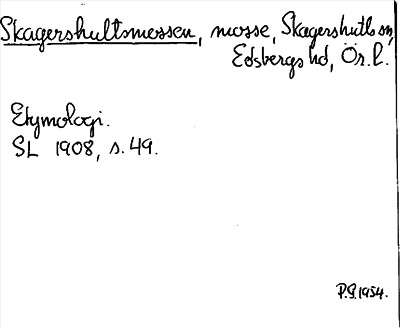 Skagershultsmossen, mosse, Skagershults sn,
Edsbergs hd, Ör. l.
Etymologi.
SL 1908, s. 49.
P.G. 1954.